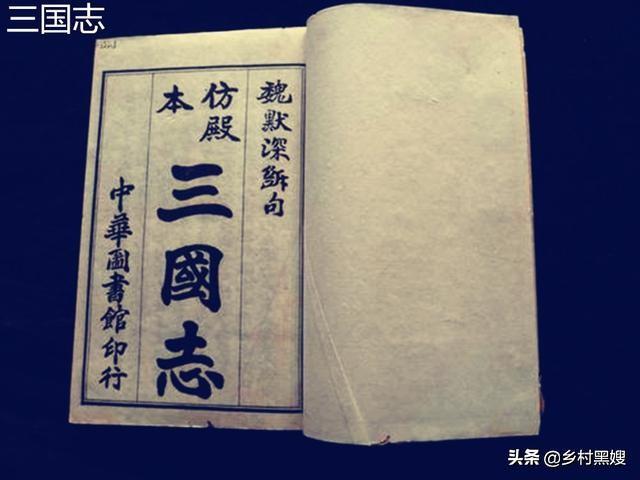 三国志
魏默深斷句
仿殿本
三國志
中華圖書館印行
头条 @乡村黑嫂